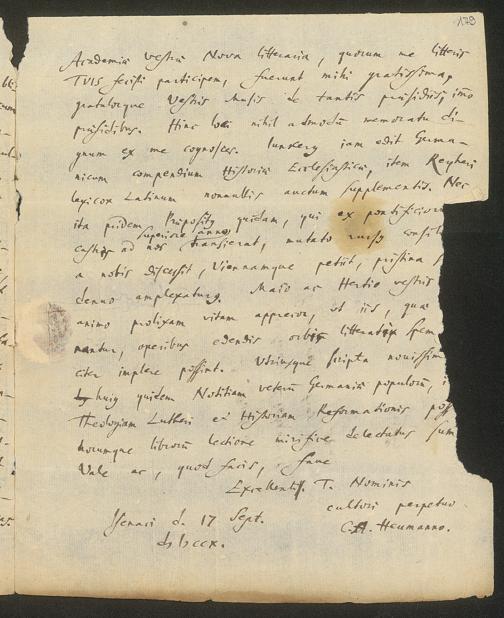 179
Academiæ vestræ Nova litteraria, quorum me litteris
TVIS fecisti participem, fuerunt mihi gratissima,
gratulorque Vestris Musis de tantis præsidiis, imo
præsidibus. Hinc nihil admodum memoratu di-
gnum ex me cognosces. Junkerg iam edit Germa-
nicum compendium Historiæ Ecclesiasticæ, item Reyheri
lexicon Latinum nonnullis auctum supplementis. Nec
ita pridem Præpositg quidam, qui ex pontificior
superiore anno
castris ad nos transierat, mutato rursg consil
a nobis discessit, Viennamque petiit, pristina s
denuo amplexaturg. Maio ac Hertio vestris
animo prolixam vitam apprecor, ut iis, quæ
nantur, operibus edendis orbis litterati spem
citer implere possint. Utriusque scripta novissim
huig quidem Notitiam veterũ Germaniæ populorũ, i
Theologiam Lutheri et Historiam Reformationis poss
horumque librorũ lectione mirifice delectatus sum
Vale ac, quod facis, fave
Excellentiss. T. Nominis
cultori perpetuo
C. A. Heumanno.
Isenaci d. 17 Sept.